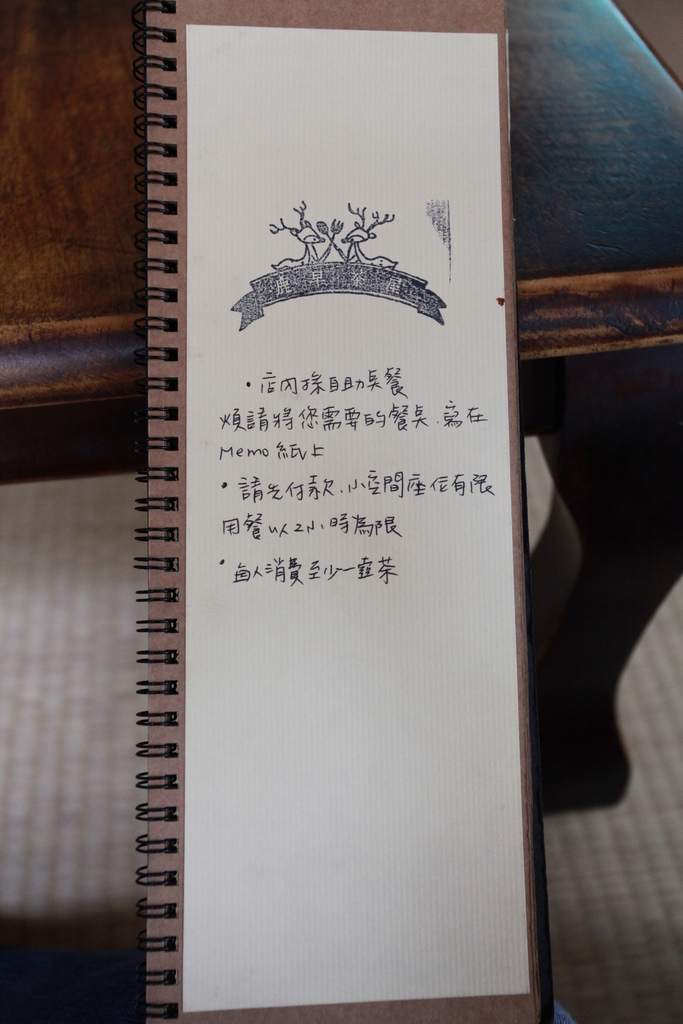 鹿早茶屋
•店內採自助點餐
煩請將您需要的餐點.寫在
Memo紙上
•請先付款.小空間座位有限
用餐以2小時為限
•每人消費至少一壺茶